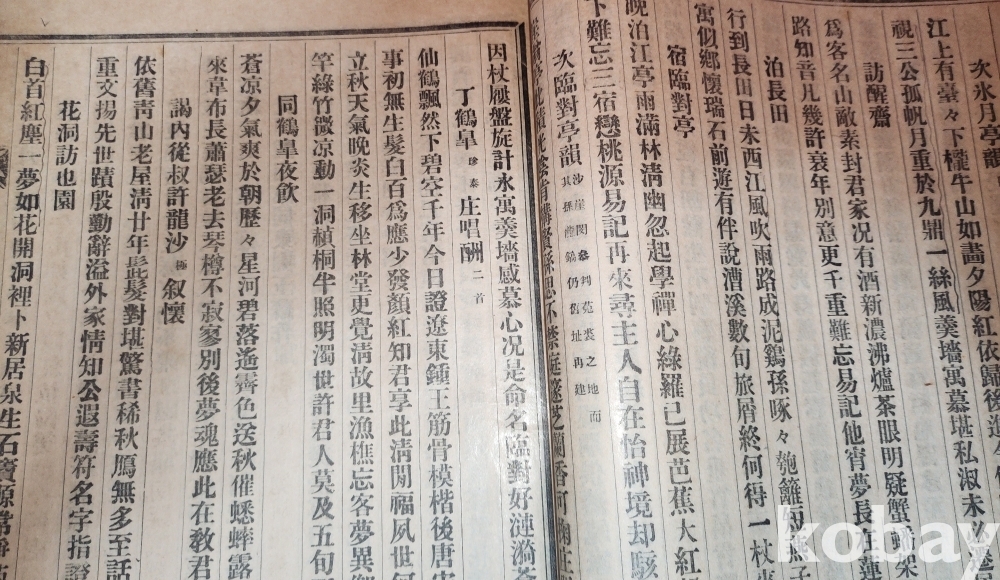 次氷月亭韻
江上有臺々下櫂牛山如畵夕陽紅依歸後進
視三公孤帆月重於九鼎一絲風羹墻寓慕堪私淑未
訪醒齋
爲客名山敵素封君家况有酒新濃沸爐茶眼明疑蟹
路知音凡幾許衰年別意更千重難忘易記他宵夢長在蓮
泊長田
行到長田日未西江風吹雨路成泥鷄孫啄々匏籬
寓似鄕懷瑞石前遊有伴說漕溪數旬旅屑終何得一杖
宿臨對亭
晚泊江亭雨滿林淸幽忽起學禪心綠羅已展芭蕉大紅
下難忘三宿戀桃源易記再來尋主人自在怡神境却
次臨對亭韻 沙崖閔參判菟裘之地而其孫 仍舊址再建
因杖屨盤旋計永寓羹墻感慕心况是命名臨對好漣漪
丁鶴臯 珍奏 庄唱酬 二首
仙鶴飄然下碧空千年今日證遼東鍾王筋骨模楷後唐
事初無生髮白百爲應少發顏紅知君享此淸閒福夙世何
立秋天氣晚炎生移坐林堂更覺淸故里漁樵忘客夢異鄕
竿綠竹微凉動一洞楨桐午照明濁世許君人莫及五旬
同鶴臯夜飮
蒼凉夕氣爽於朝歷々星河碧落遙齊色送秋催蟋蟀露
來韋布長蕭瑟老去琴樽不寂寥別後夢魂應此在敎君
謁內從叔許龍沙 極 叙懷
依舊靑山老屋淸廿年髭髮對堪驚書稀秋鴈無多至話
重文揚先世蹟殷勤辭溢外家情知公遐壽符名字指證
花洞訪也園
白首紅塵一夢如花開洞裡卜新居泉生石竇源常淨
kobay